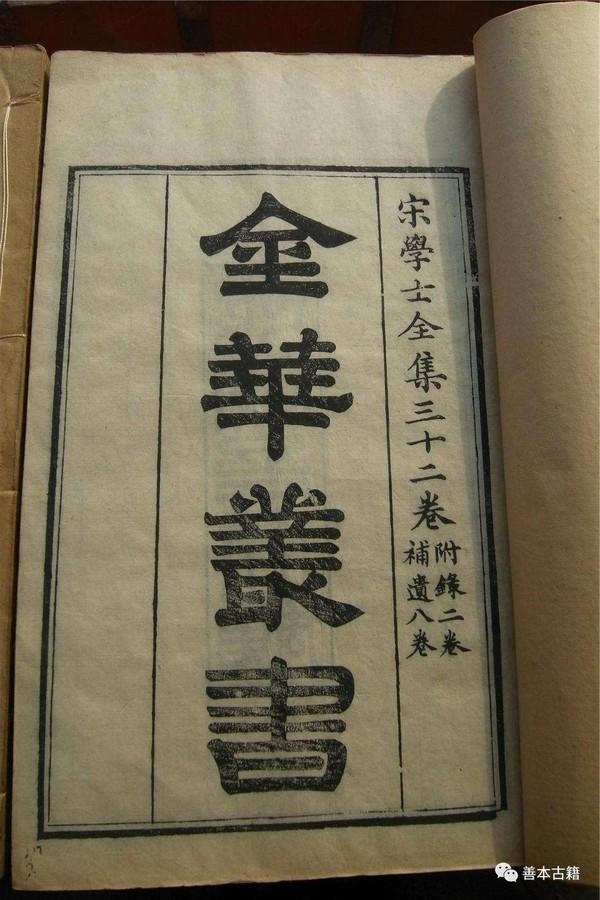 宋學士全集三十二卷
附錄二卷
補遺八卷
金華叢書
善本古籍